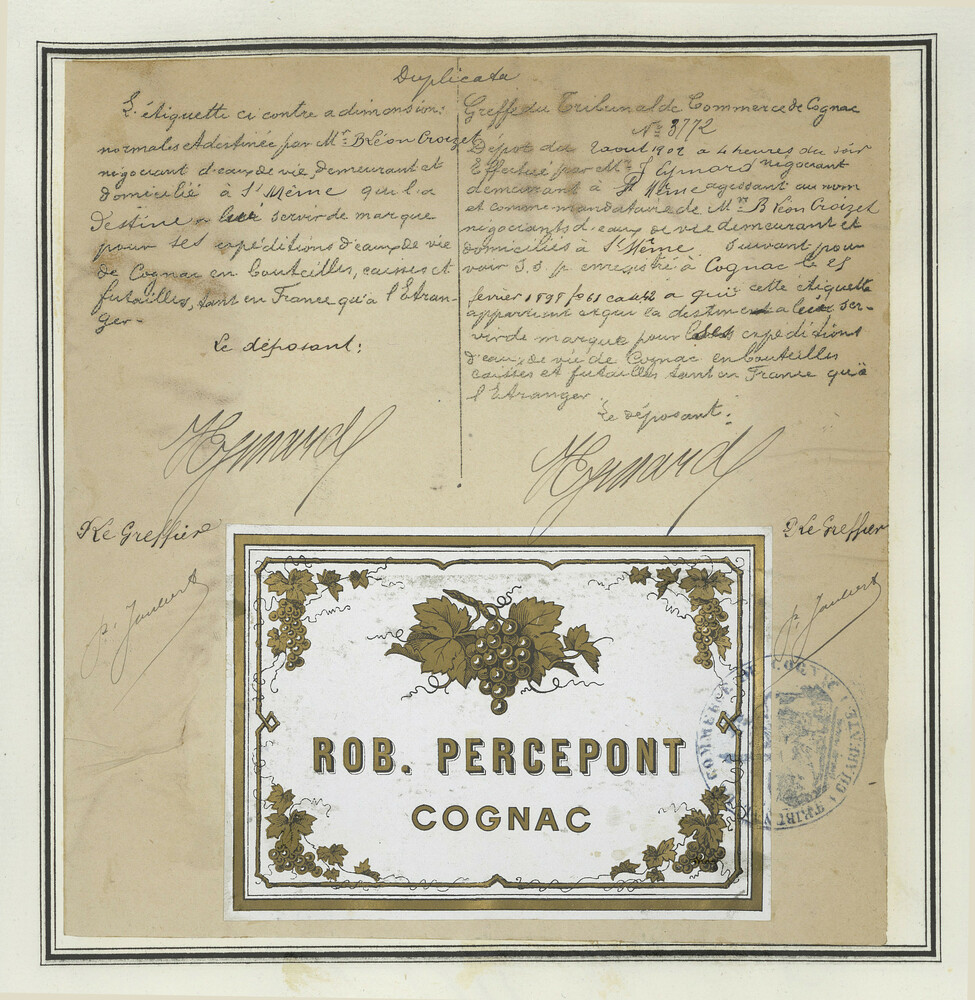 Duplicata
L'étiquette ci contre a dimensions
normales et destinée par Mr B Léon Croizet
négociant d'eaux de vie, demeurant et
domicilié à St Même qui la
destine a lui servir de marque
pour ses expéditions d'eaux de vie
de Cognac en bouteilles, caisses et
futailles, tant en France qu'à l'Etran-
ger.-
Le déposant:
Le Greffier
Greffe du Tribunal de Commerce de Cognac
No 3772
Dépot du 2 aout 1902 à 4 heures du soir
Effectué par Mr négociant
demeurant à St Même agissant au nom
et comme mandataire de Mr B Léon Croizet
négociants d'eaux de vie demeurant et
domiciliés à St Même Suivant pou-
voir S. S. p. enregistré à Cognac le 25
fevrier fo 61 a qui cette étiquette
appartient et qui la destine a ser-
vir de marque pour ses expéditions
d'eaux de vie de Cognac en bouteilles
caisses et futailles tant en France qu'à
l'Etranger.
Le déposant:
Le Greffier
ROB. PERCEPONT
COGNAC
COMMERCE DE COGNAC